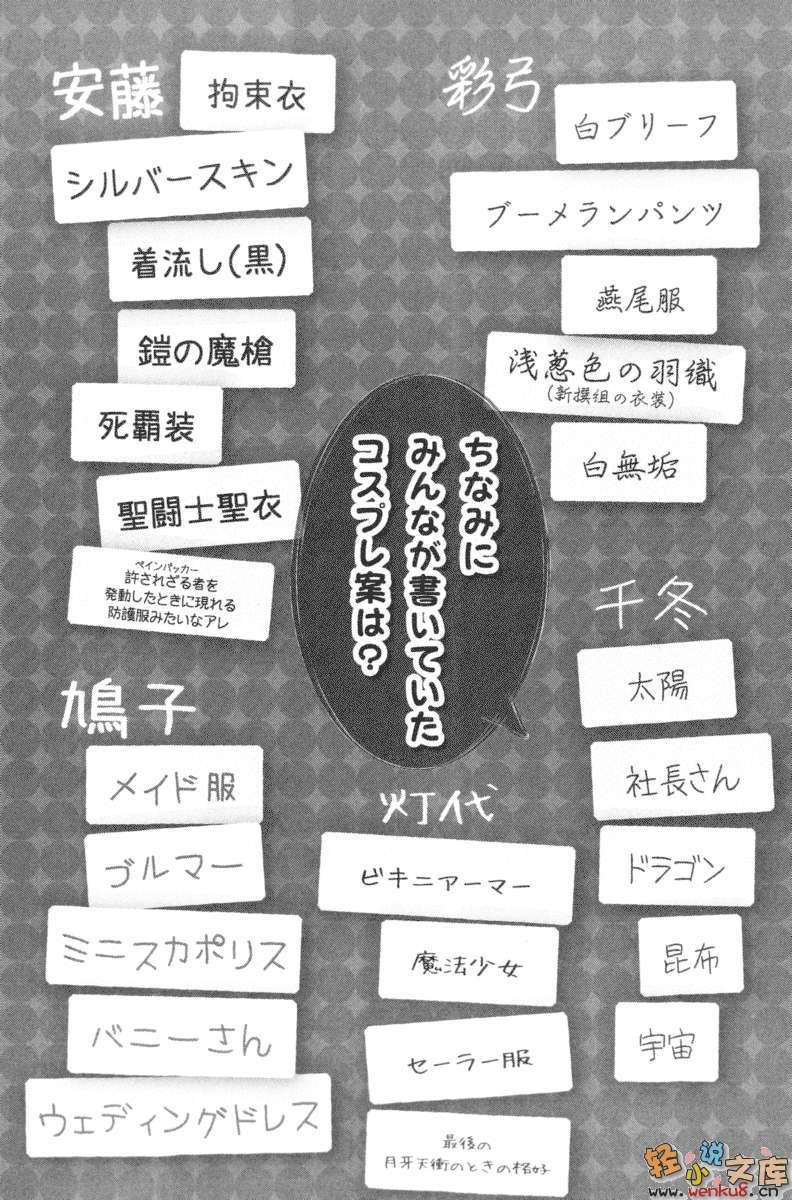 安藤
拘束衣
シルバースキン
着流し(黒)
鎧の魔槍
死覇装
聖闘士聖衣
ペインパッカー
許されざる者を
発動したときに現れる
防護服みたいなアレ
彩弓
白ブリーフ
ブーメランパンツ
燕尾服
浅葱色の羽織
(新撰組の衣装)
白無垢
ちなみに
みんなが書いていた
コスプレ案は?
千冬
太陽
社長さん
ドラゴン
昆布
宇宙
鳩子
メイド服
ブルマー
ミニスカポリス
バニーさん
ウェディングドレス
灯代
ビキニアーマー
魔法少女
セーラー服
最後の
月牙天衝のときの格好
轻小说文库
www.wenku8.cn